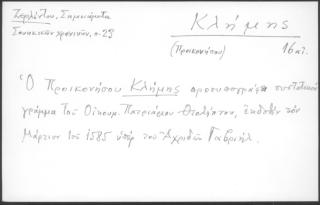 Ζερλέντου, Σημειώματα
Σιναϊτικῶν χρονικῶν, σ. 23
Κλήμης
(Προικονήσου)
16 αἰ.
Ὁ Προικονήσου Κλήμης προσυπογράφει συστατικὸν
γράμμα τοῦ Οἰκουμ. Πατριάρχου Θεολήπτου, ἐκδοθὲν τὸν
Μάρτιον τοῦ 1585 ὑπὲρ τοῦ Ἀχριδῶν Γαβριήλ.